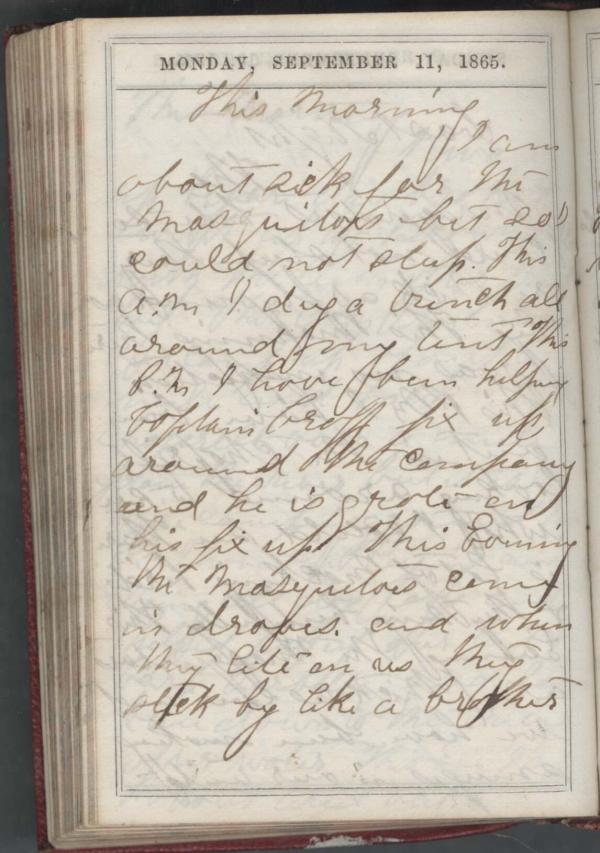 MONDAY, SEPTEMBER 11, 1865.
This Morning
I am
about sick for the
Masquitoes bit so I
could not sleep. This
A.M. I dug a trench all
around my tent This
P.M I have been helping
Captain Croff fix up
around the Company
and he is grate on
his fix up. This Evening
the Masquitoes come
in droves. and when
they lite on us they
stick by like a brother